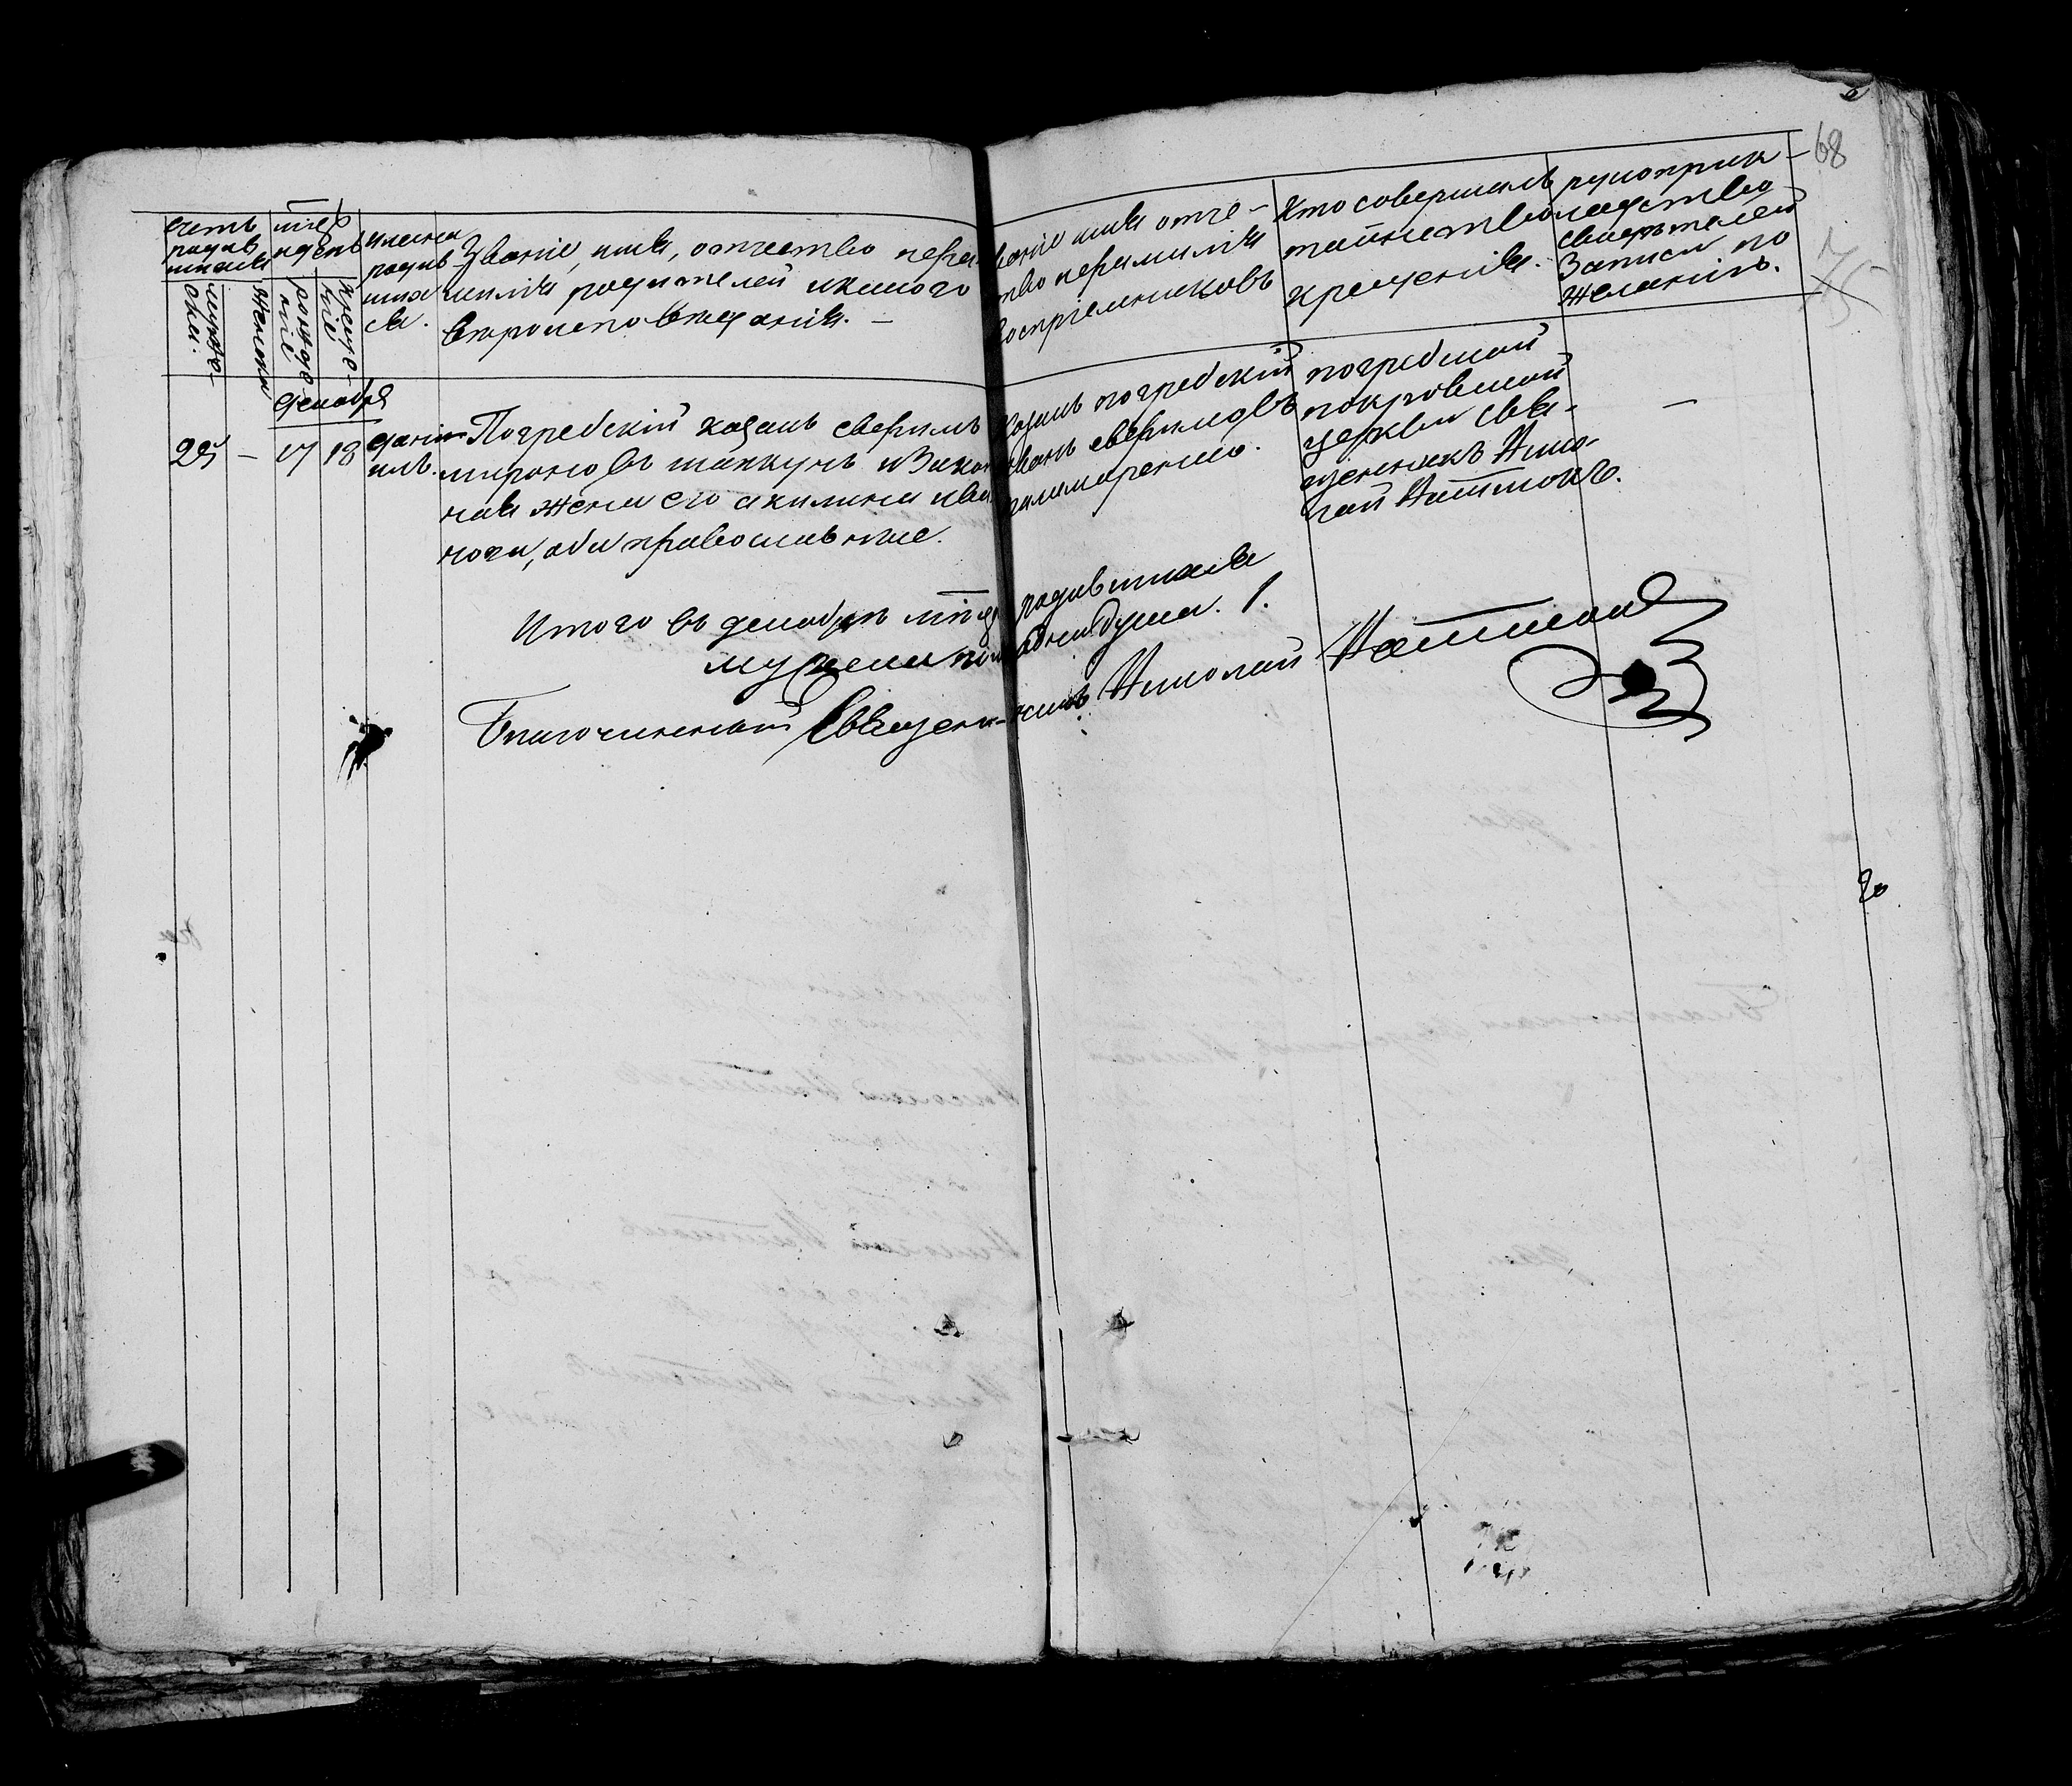 68
75
Счетъ
родив
шихся
мцъ
и день
Имена
родив
шихъ
ся.
Званіе, имя, отчество и фами
милія родителей и какого
вѣроисповѣданія. —
Званіе имя отче-
ство и фамилія
воспріемниковъ
Кто совершалъ
таинство
крещенія.
рукоприк-
ладство
свидѣтелей
записи по
желанію.
мужес-
кой.
женска
рожде-
ніе
креще-
ніе
декабря
25 — 17 18
данi-
илъ.
Погребскій козакъ евфимъ
мироновъ шапкунъ и закон
ная жена его акилина ива
нова, оба православные.
козакъ погребскій
иванъ евфимовъ
паламаренко.
погребской
покровской
церкви свя-
щенникъ Нико-
лай
—
Итого въ декабрѣ мцѣ родившихся
мужеска пола одна душа. 1.
Благочинный Священникъ Николай